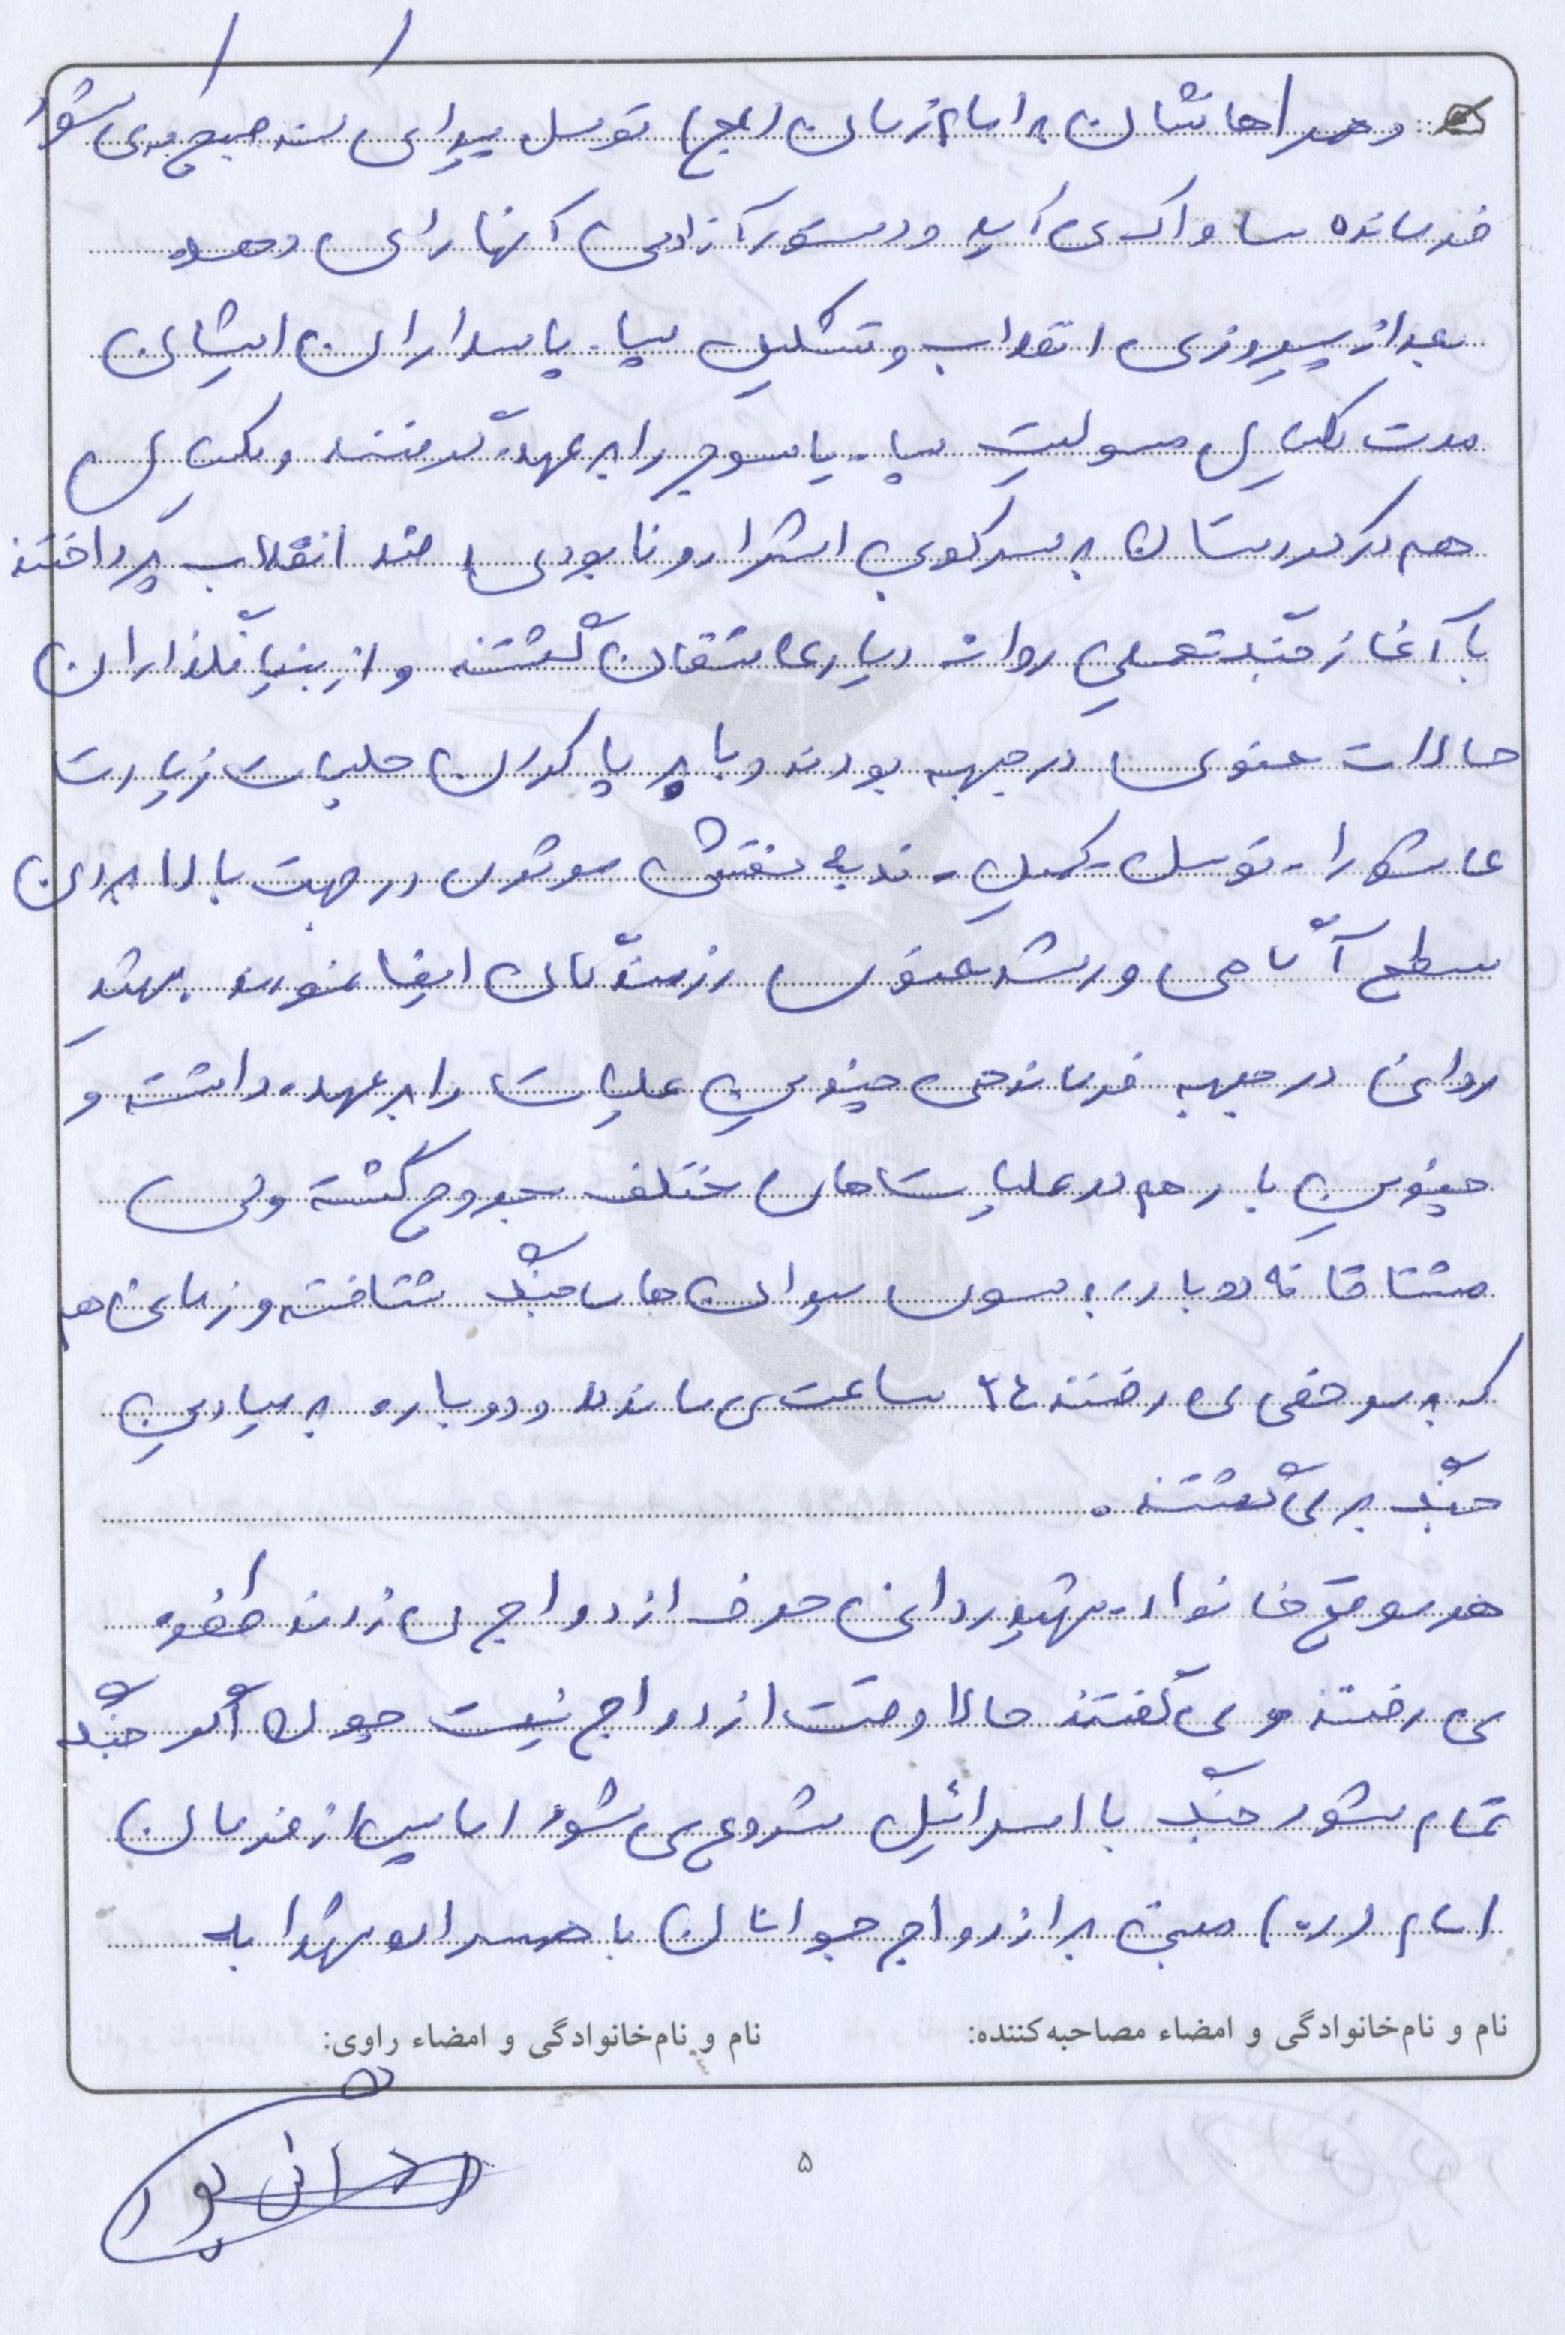 و همراهانشان به امام زمان (عج) توسل پیدا می کنند صبح می شود
فرمانده ساواک می آید و دستور آزادی آنها را می دهد
بعد از پیروزی انقلاب و تشکیل سپاه پاسداران ایشان
مدت یکسال مسولیت سپاه یاسوج را بر عهده گرفتند و یکسال
هم در کردستان به سرکوبی اشرار و نابودی ضد انقلاب پرداختند
با آغاز جنگ تحمیلی روانه دیار عاشقان گشتند و از بنیانگذاران
حالات معنوی در جبهه بودند و با بر پا کردن جلسات زیارت
عاشورا - توسل - کمیل - ندبه نقش موثری در جهت بالا بردن
سطح آگاهی و رشد معنوی رزمندگان ایفا نمودند. شهید
روانی در جبهه فرماندهی چندین عملیات را بر عهده داشته و
چندین بار هم در عملیات های مختلف مجروح گشته ولی
مشتاقانه دوباره به سوی میدان های جنگ شتافته و زمانی هم
که به مرخصی می رفتند ۲۴ ساعت می ماندند و دوباره به میادین
جنگ بر می گشتند.
هر موقع خانواده شهید روانی حرف ازدواج می زدند طفره
می رفتند و می گفتند حالا وقت ازدواج نیست چون اگر جنگ
تمام شود جنگ با اسرائیل شروع می شود اما پس از فرمان
امام (ره) مبنی بر ازدواج جوانان با همسران شهدا به
نام و نام‌خانوادگی و امضاء مصاحبه‌کننده:
نام و نام‌خانوادگی و امضاء راوی:
۵